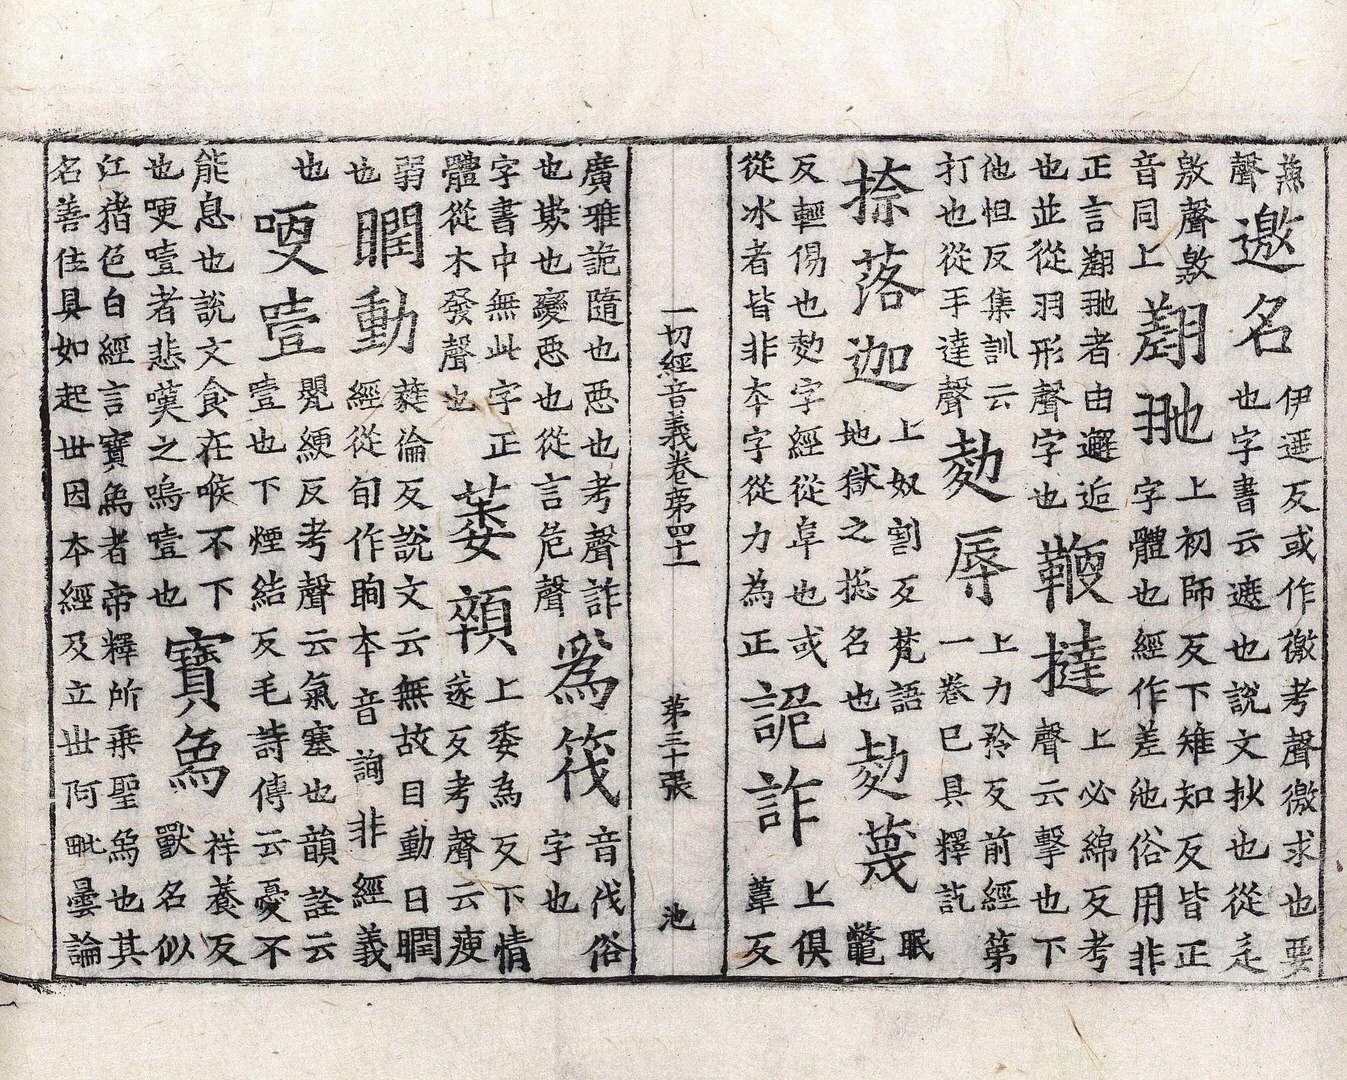 燕
聲
邀名
伊遥反或作徼考聲徼求也要
也字書云遮也說文抄也從辵
敫聲敫
音同上
上初師反下雉知反皆正
字體也經作差池俗用非
正言
者由邂逅
也並從羽形聲字也
鞭撻
上必綿反考
聲云擊也下
他怛反集訓云
打也從手達聲
勑辱
上力矜反前經第
一卷已具釋訖
捺落迦
上奴割反梵語
地獄之揔名也
勑蔑
眠
鼈
反輕傷也勑字經從阜也或
從氷者皆非本字從力為正
詭詐
上俱
葦反
一切經音義卷第四十一 第三十張 池
廣雅詭隨也惡也考聲詐
也欺也變惡也從言危聲
爲筏
音伐俗
字也
字書中無此字正
體從木發聲也
萎顇
上委為反下情
遂反考聲云瘦
弱
也
瞤動
蕤倫反說文云無故目動曰瞤
經從旬作眴本音詢非經義
也
哽噎
甖綆反考聲云氣塞也韻詮云
壹也下煙結反毛詩傳云憂不
能息也說文食在喉不下
也哽噎者悲嘆之嗚噎也
寶象
祥養反
獸名似
江猪色白經言寶象者帝釋所乘聖象也其
名善住具如起世因本經及立世阿毗曇論